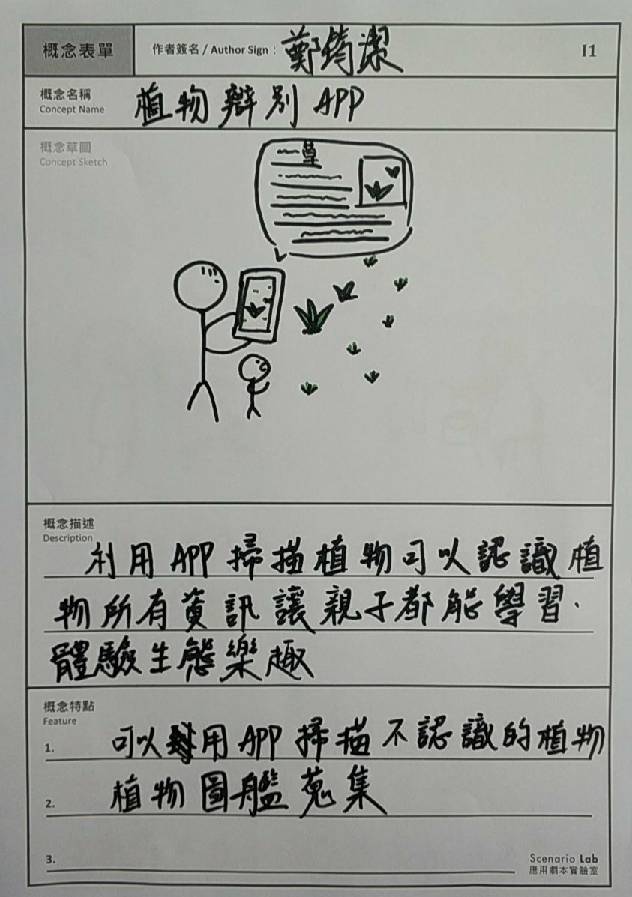 概念表單 作者簽名 / Author Sign : 鄭筠潔 I1
概念名稱
Concept Name
植物辯別 APP
概念草圖
Concept Sketch
概念描述
Description
利用 APP 掃描植物可以認識植
物所有資訊讓親子都能學習、
體驗生態樂趣
概念特點
Feature
1. 可以用 APP 掃描不認識的植物
2. 植物圖艦蒐集
3.
Scenario Lab
應用劇本實驗室